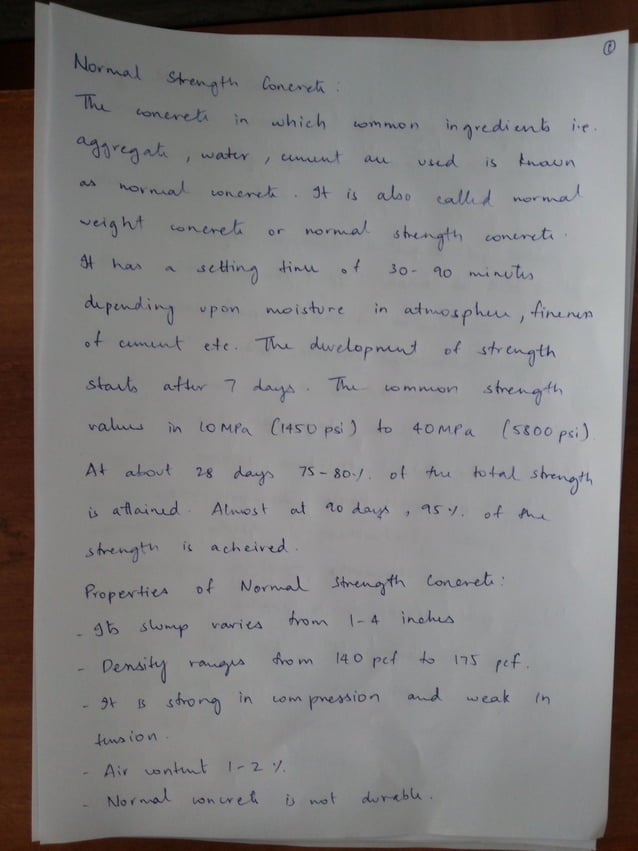 1
Normal Strength Concrete :
The concrete in which common ingredients i.e.
aggregate , water , cement are used is known
as normal concrete . It is also called normal
weight concrete or normal strength concrete .
It has a setting time of 30 - 90 minutes
depending upon moisture in atmosphere , fineness
of cement etc. The development of strength
starts after 7 days . The common strength
values in 10 MPa (1450 psi) to 40 MPa (5800 psi).
At about 28 days 75 - 80 % of the total strength
is attained . Almost at 90 days , 95 % of the
strength is acheived .
Properties of Normal Strength Concrete :
- Its slump varies from 1 - 4 inches
- Density ranges from 140 pcf to 175 pcf .
- It is strong in compression and weak in
tension .
- Air content 1 - 2 %.
- Normal concrete is not durable .